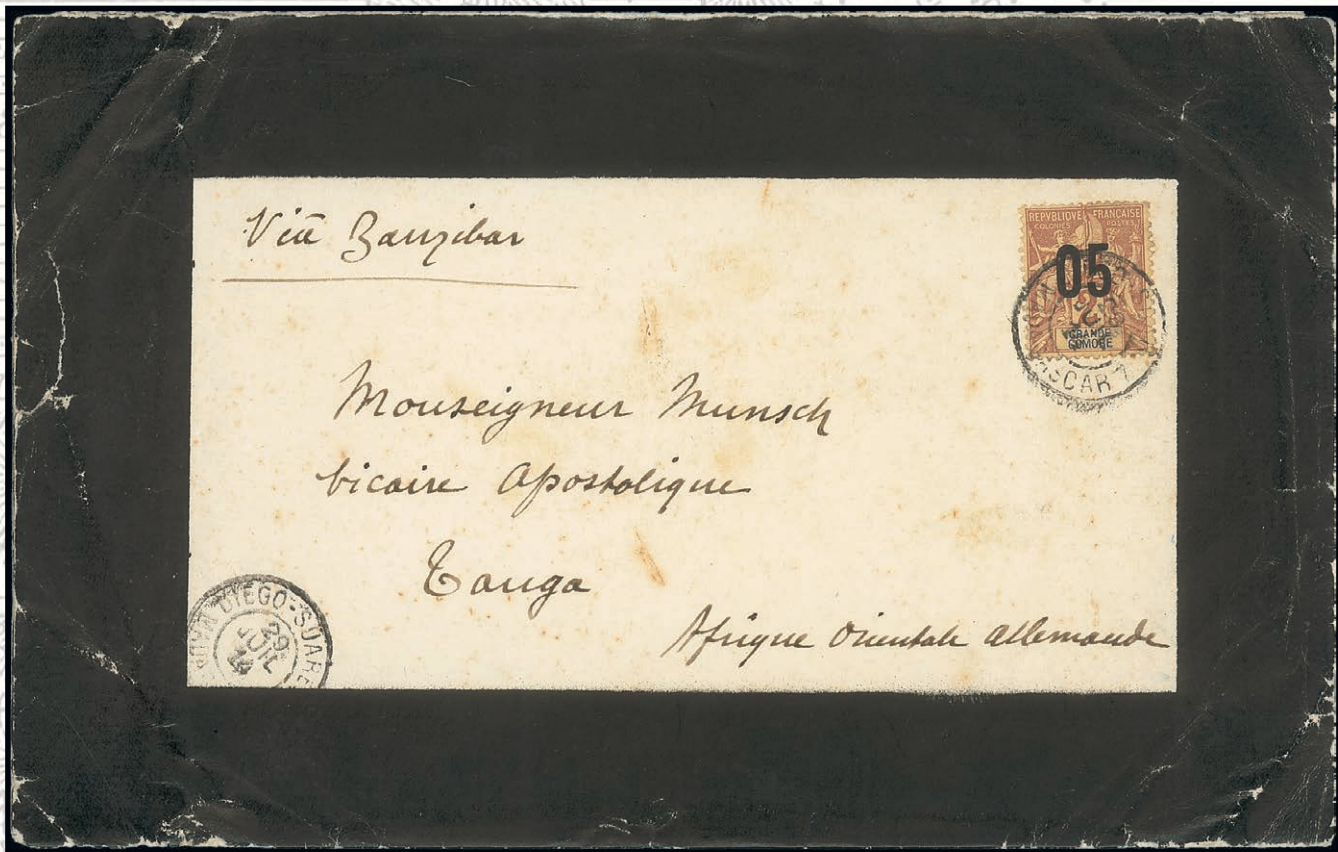 Viā Zanzibar
REPVBLIQVE FRANÇAISE
COLONIES POSTES
05
2
GRANDE
COMORE
Monseigneur Munsch
vicaire Apostolique
Tanga
Afrique Orientale Allemande
DIEGO-SUARE
29
JUIL
14